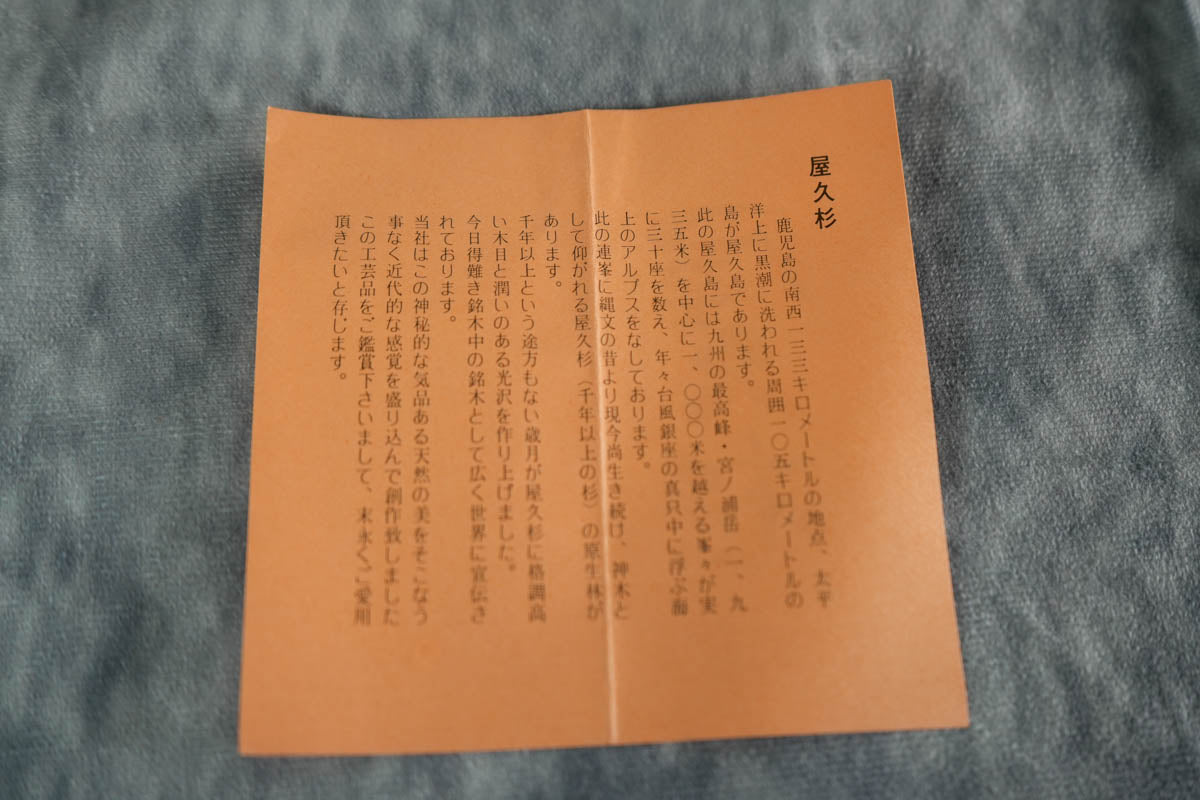 屋久杉
鹿児島の南西一三三キロメートルの地点、太平
洋上に黒潮に洗われる周囲一〇五キロメートルの
島が屋久島であります。
此の屋久島には九州の最高峰・宮ノ浦岳（一、九
三五米）を中心に一、〇〇〇米を越える峯々が実
に三十座を数え、年々台風銀座の真只中に浮ぶ海
上のアルプスをなしております。
此の連峯に縄文の昔より現今尚生き続け、神木と
して仰がれる屋久杉（千年以上の杉）の原生林が
あります。
千年以上という途方もない歳月が屋久杉に格調高
い木目と潤いのある光沢を作り上げました。
今日得難き銘木中の銘木として広く世界に宣伝さ
れております。
当社はこの神秘的な気品ある天然の美をそこなう
事なく近代的な感覚を盛り込んで創作致しました
この工芸品をご鑑賞下さいまして、末永くご愛用
頂きたいと存じます。